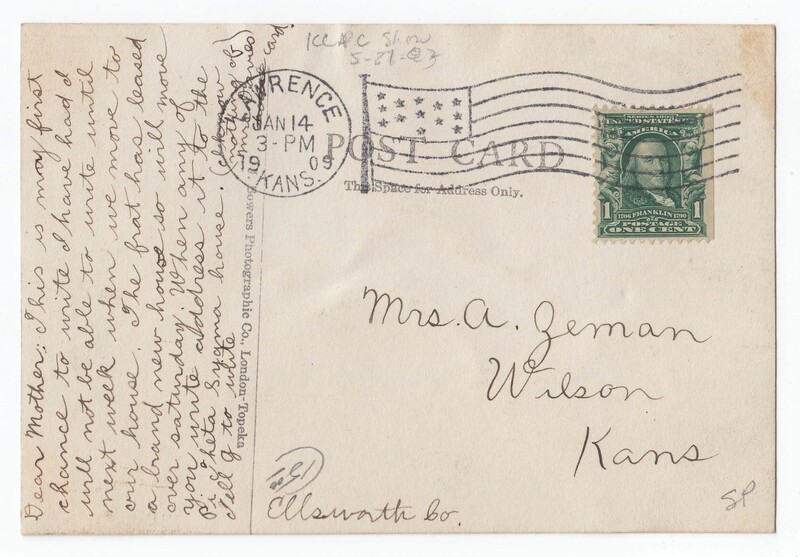 Dear Mother: This is may first
chance to write I have had I
will not be able to write until
next week when we move to
our house. The frat has leased
a brand new house so will move
over saturday. When any of
you write address it to the
Pi Theta Sygma house.
Tell G to write
nothing of
card
Bowers Photographic Co., London-Topeka
KCAPC Show
LAWRENCE
JAN 14
3-PM
1909
KANS.
POST CARD
This Space for Address Only.
SERIES 1902
UNITED STATES OF
AMERICA
1
1706 FRANKLIN 1790
POSTAGE
ONE CENT
Mrs. A. Zeman
Wilson
Kans
Ellsworth Co.